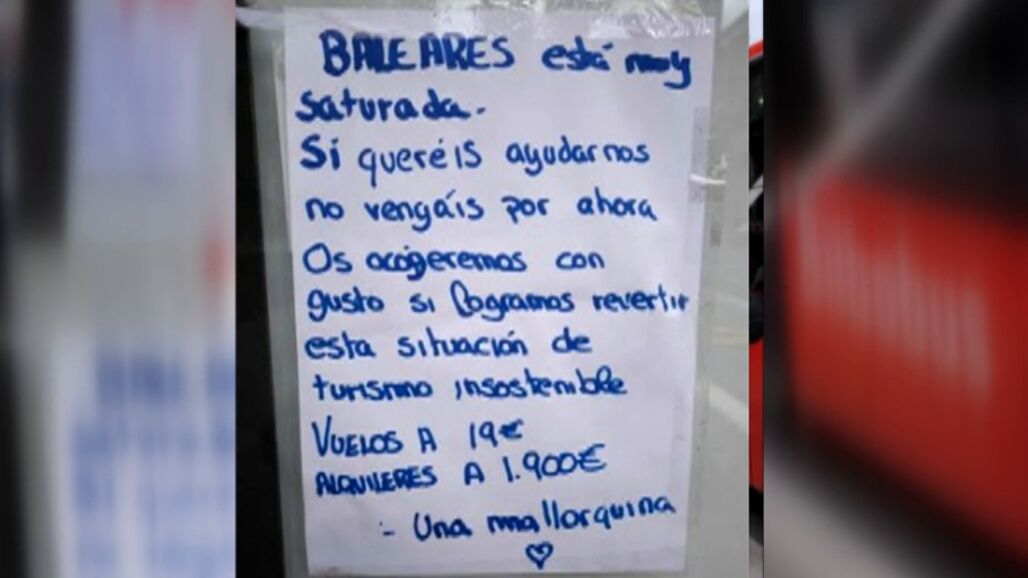 BALEARES está muy
saturada.
Si queréis ayudarnos
no vengáis por ahora
Os acógeremos con
gusto si logramos revertir
esta situación de
turismo insostenible
VUELOS A 19€
ALQUILERES A 1.900€
- Una mallorquina